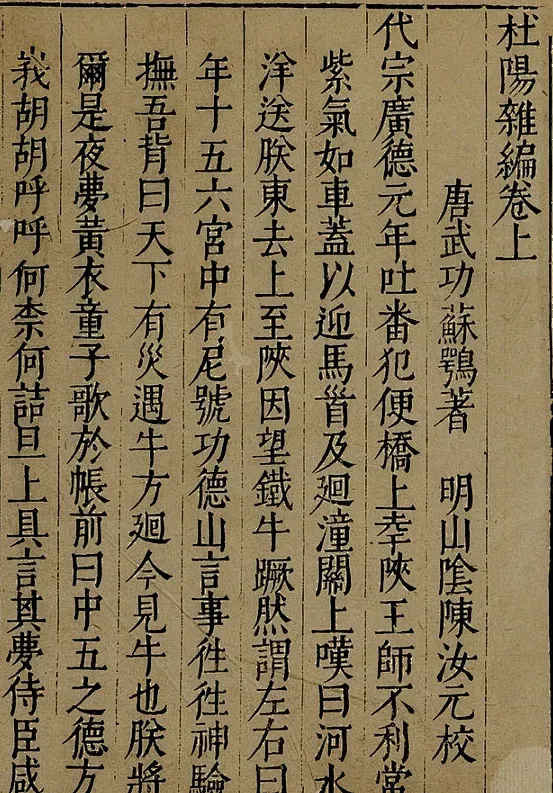 杜陽雜編卷上
唐武功蘇鶚著 明山陰陳汝元校
代宗廣德元年吐番犯便橋上幸陜王師不利常
紫氣如車蓋以迎馬首及廻潼關上嘆曰河水
洋送朕東去上至陜因望鐵牛蹶然謂左右曰
年十五六宮中有尼號功德山言事徃徃神驗
撫吾背曰天下有災遇牛方廻今見牛也朕將
爾是夜夢黃衣童子歌於帳前曰中五之德方
峩胡胡呼呼何柰何詰旦上具言其夢侍臣咸